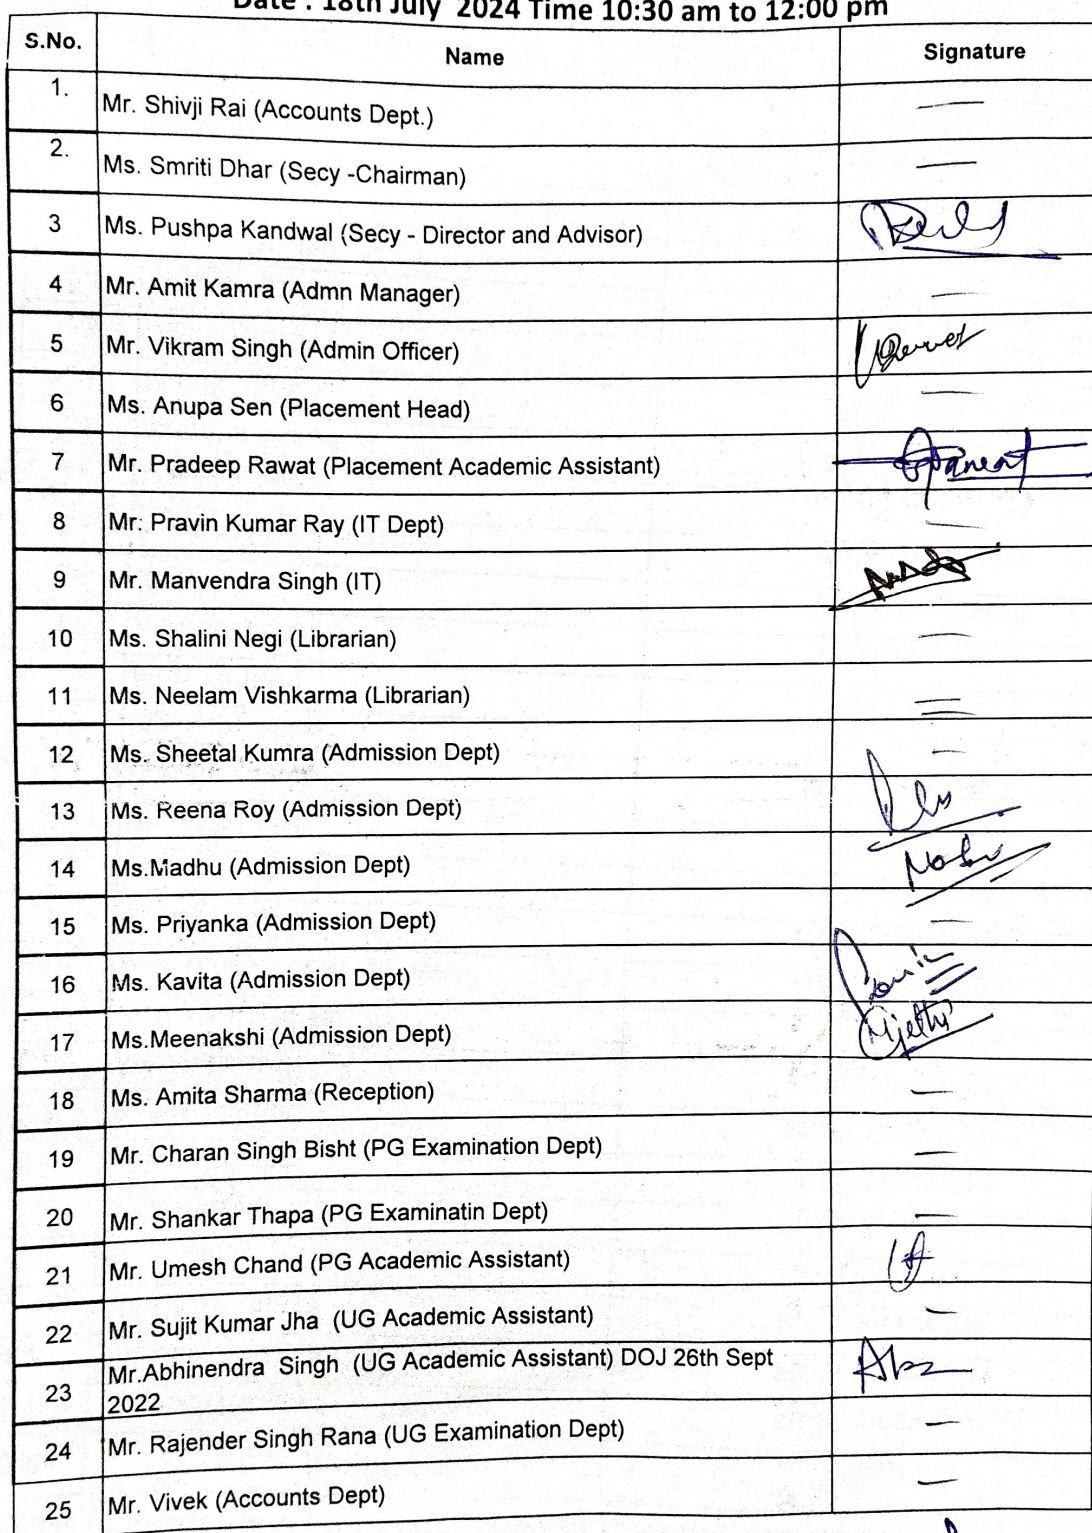 Date : 18th July 2024 Time 10:30 am to 12:00 pm
S.No. Name Signature
1. Mr. Shivji Rai (Accounts Dept.) —
2. Ms. Smriti Dhar (Secy -Chairman) —
3 Ms. Pushpa Kandwal (Secy - Director and Advisor)
4 Mr. Amit Kamra (Admn Manager) —
5 Mr. Vikram Singh (Admin Officer)
6 Ms. Anupa Sen (Placement Head) —
7 Mr. Pradeep Rawat (Placement Academic Assistant)
8 Mr. Pravin Kumar Ray (IT Dept) —
9 Mr. Manvendra Singh (IT)
10 Ms. Shalini Negi (Librarian) —
11 Ms. Neelam Vishkarma (Librarian) —
12 Ms. Sheetal Kumra (Admission Dept) —
13 Ms. Reena Roy (Admission Dept)
14 Ms.Madhu (Admission Dept)
15 Ms. Priyanka (Admission Dept) —
16 Ms. Kavita (Admission Dept)
17 Ms.Meenakshi (Admission Dept)
18 Ms. Amita Sharma (Reception) —
19 Mr. Charan Singh Bisht (PG Examination Dept) —
20 Mr. Shankar Thapa (PG Examinatin Dept) —
21 Mr. Umesh Chand (PG Academic Assistant)
22 Mr. Sujit Kumar Jha (UG Academic Assistant) —
23 Mr.Abhinendra Singh (UG Academic Assistant) DOJ 26th Sept
2022
24 Mr. Rajender Singh Rana (UG Examination Dept) —
25 Mr. Vivek (Accounts Dept) —